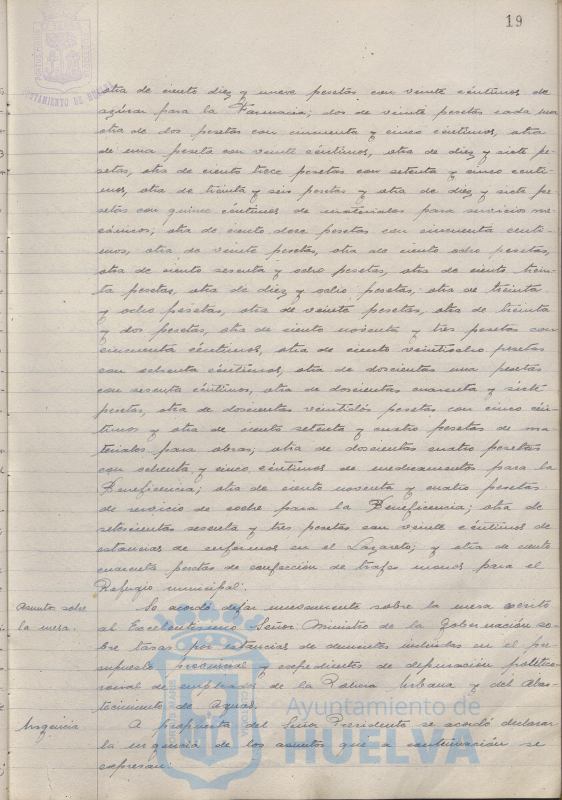 19
AYUNTAMIENTO DE HUELVA
otra de ciento diez y nueve pesetas con veinte céntimos de
azúcar para la Farmacia; dos de veinte pesetas cada una
otra de dos pesetas con cincuenta y cinco céntimos, otra
de una peseta con veinte céntimos, otra de diez y siete pe-
setas, otra de ciento trece pesetas con setenta y cinco cénti-
mos, otra de treinta y seis pesetas y otra de diez y siete pe-
setas con quince céntimos de materiales para servicios me-
cánicos; otra de ciento doce pesetas con cincuenta cénti-
mos, otra de veinte pesetas, otra de ciento ocho pesetas,
otra de ciento sesenta y ocho pesetas, otra de ciento trein-
ta pesetas, otra de diez y ocho pesetas, otra de treinta
y ocho pesetas, otra de veinte pesetas, otra de treinta
y dos pesetas, otra de ciento noventa y tres pesetas con
cincuenta céntimos, otra de ciento veintiocho pesetas
con ochenta céntimos, otra de doscientas una pesetas
con sesenta céntimos, otra de doscientas cuarenta y siete
pesetas, otra de doscientas veintidós pesetas con cinco cén-
timos y otra de ciento setenta y cuatro pesetas de ma-
teriales para obras; otra de doscientas cuatro pesetas
con ochenta y cinco céntimos de medicamentos para la
Beneficencia; otra de ciento noventa y cuatro pesetas
de servicio de coche para la Beneficencia; otra de
setecientas sesenta y tres pesetas con veinte céntimos de
estancias de enfermos en el Lazareto; y otra de ciento
cuarenta pesetas de confección de trajes monos para el
Refugio municipal.
Asunto sobre la mesa.
Se acordó dejar nuevamente sobre la mesa escrito
al Excelentísimo Señor Ministro de la Gobernación so-
bre tasas por estancias de dementes incluidas en el pre-
supuesto provincial y expedientes de depuración político-
social de empleados de la Policía Urbana y del Abas-
tecimiento de Aguas.
Urgencia.
A propuesta del Señor Presidente se acordó declarar
la urgencia de los asuntos que a continuación se
expresan:
Ayuntamiento de
HUELVA